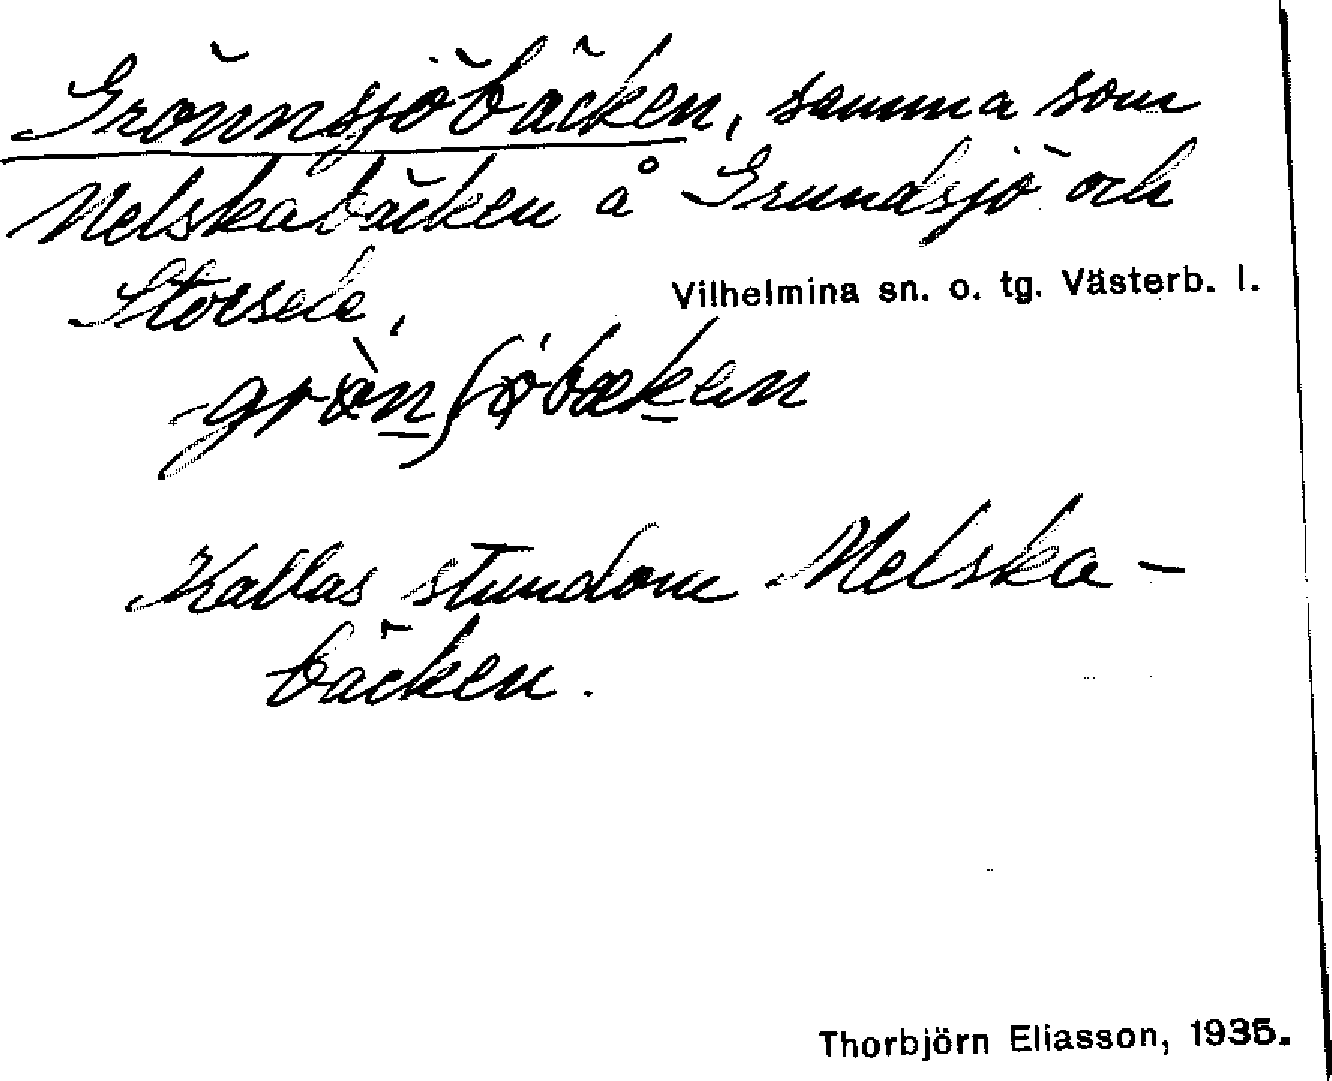 Grönnsjöbäcken, samma som
Melskabäcken å Grundsjö och
Storsele,
Vilhelmina sn. o. tg. Västerb. l.
grö̀nʃöbæken
Kallas stundom Melska-
bäcken.
Thorbjörn Eliasson, 1935.